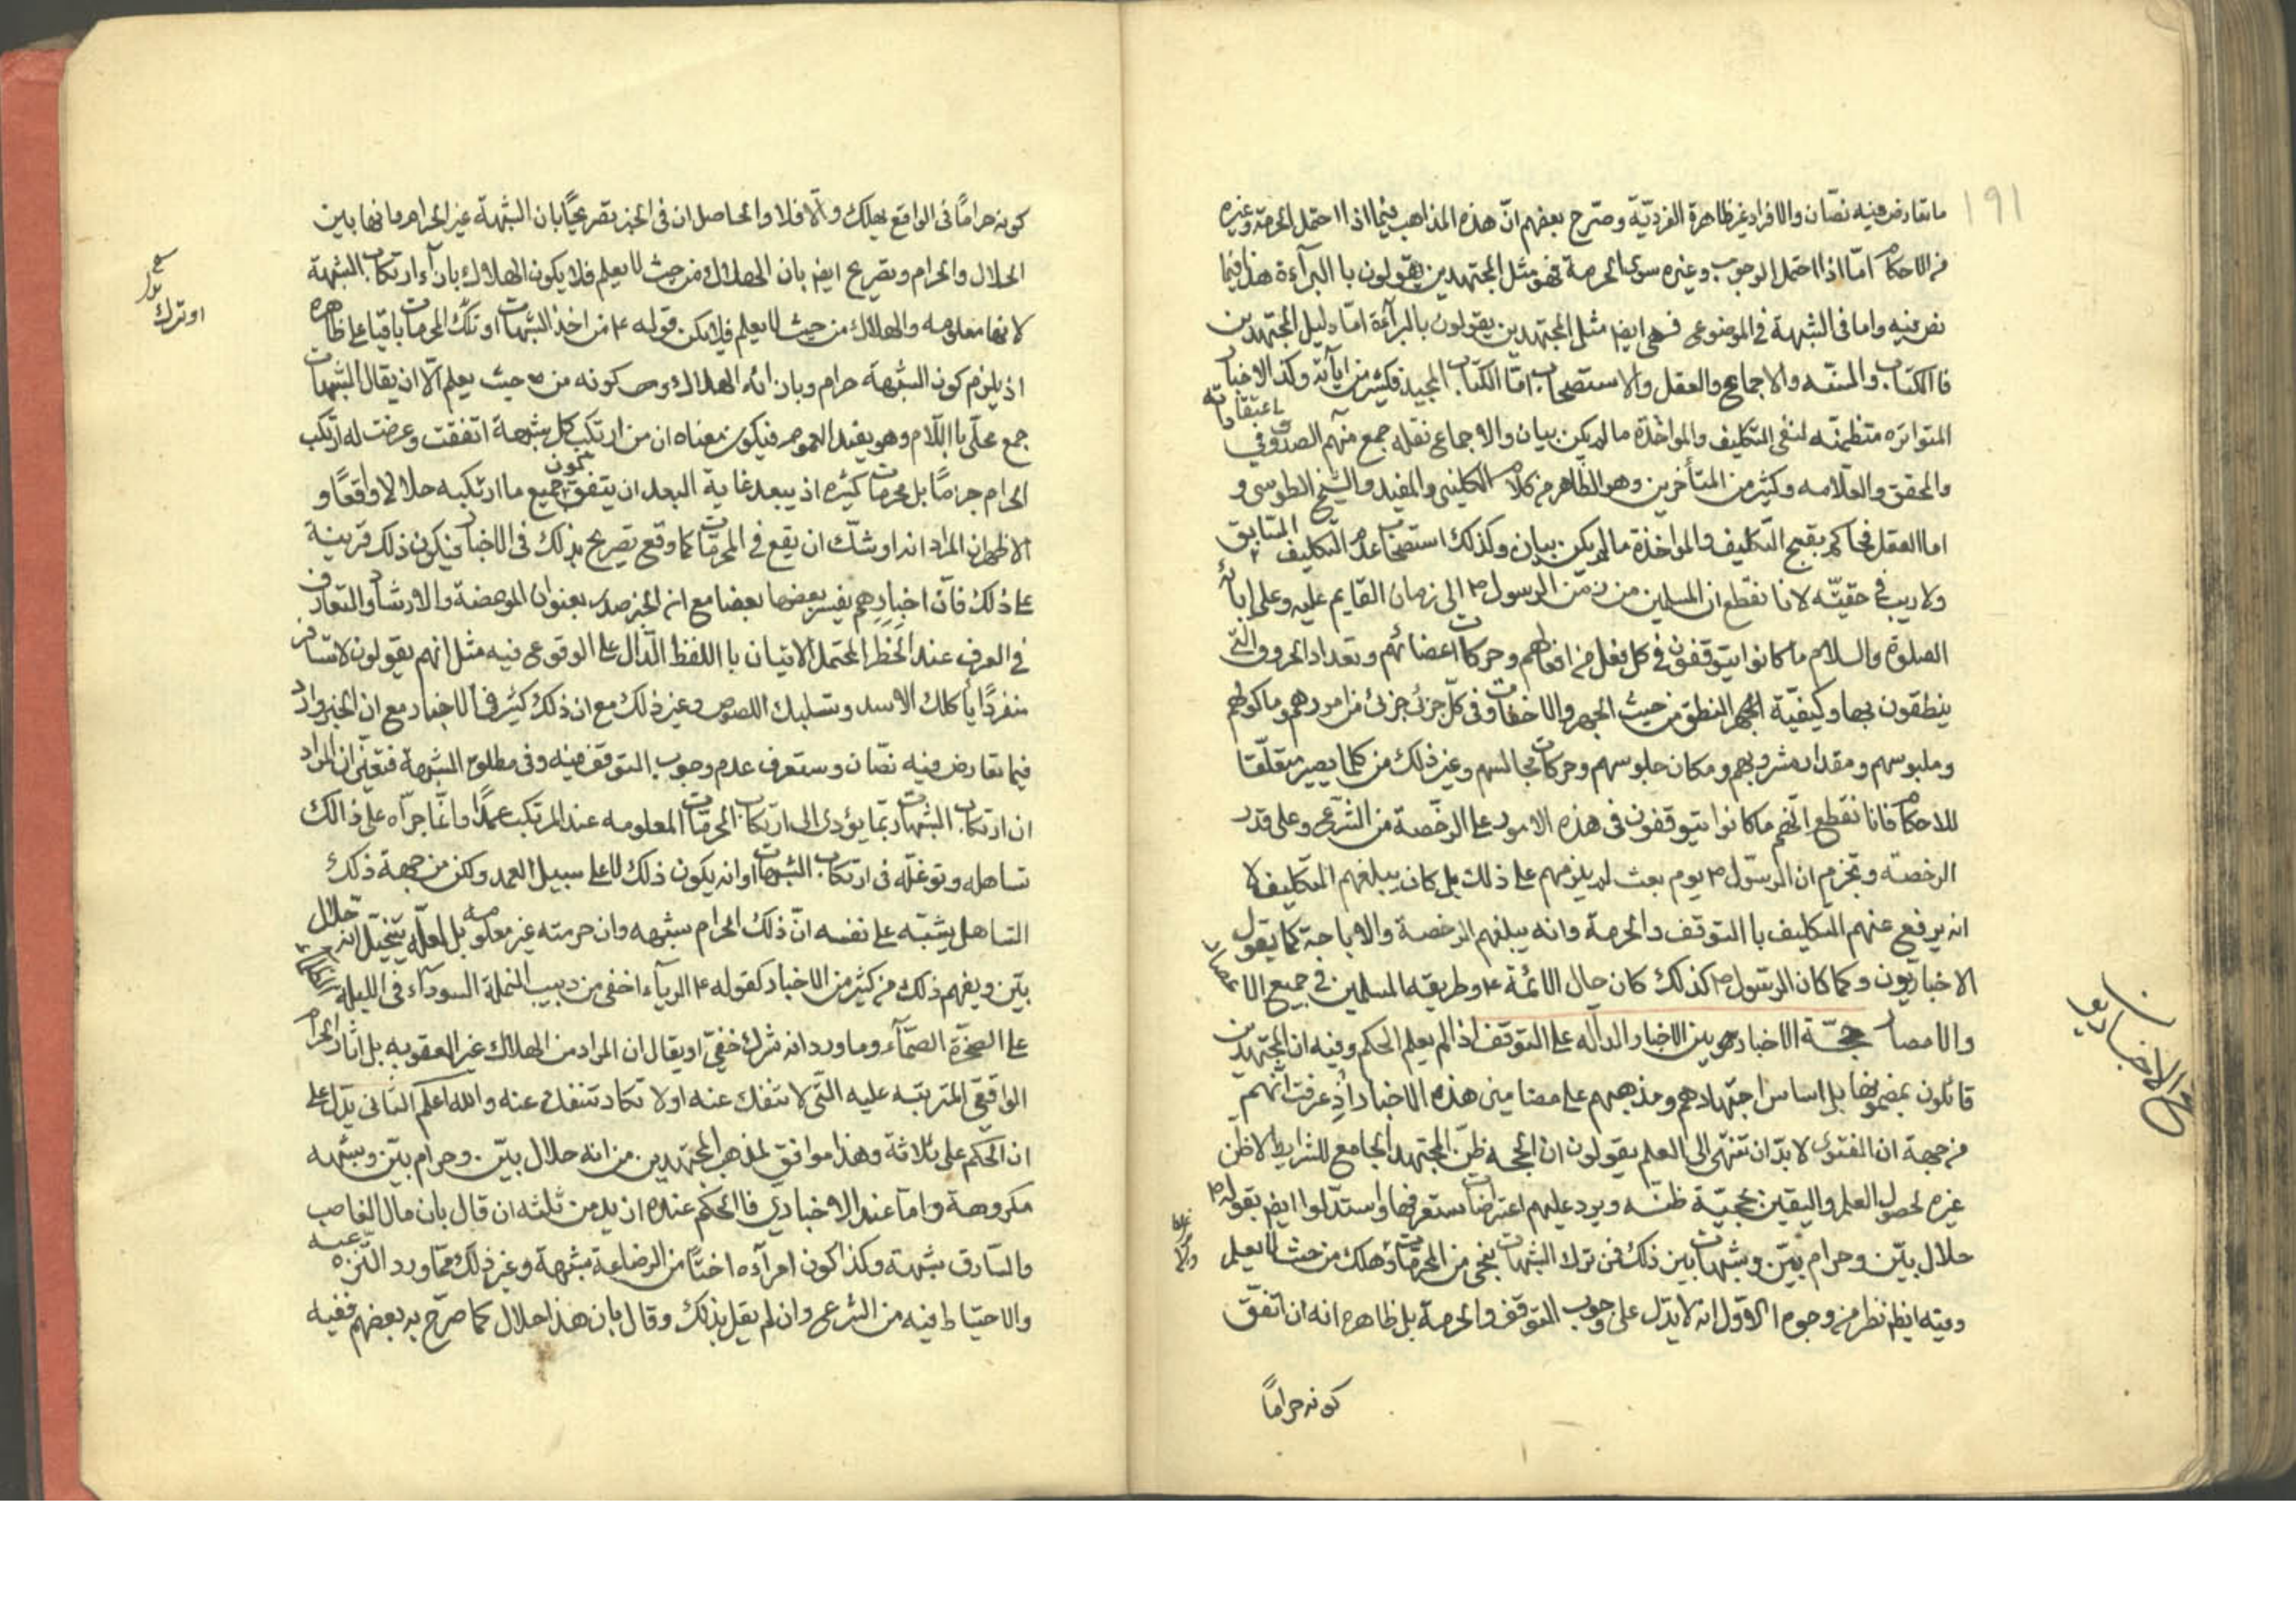 ١٩١
ما تعارض فيه نصّان والافراد غير ظاهرة الفرديّة وصرّح بعضهم انّ هذه المذاهب فيما اذا احتمل الحرمة وغيره
من الاحكام امّا اذا احتمل الوجوب وغيره سوى الحرمة فهو مثل المجتهدين يقولون با البرآءة هذا فيما
نص فيه واما فى الشبهة في الموضوعى فهى ايضا مثل المجتهدين يقولون بالبرآئة امّا دليل المجتهدين
فا الكتاب والسنّه والاجماع والعقل والاستصحاب امّا الكتاب المجيد فكثير من آياته وكذا الاخبار
المتواتره متظمنّه لنفى التكليف والمواخذة ما لم يكن بيان والاجماع نقله جمع منهم الصدوق في
باعتقاداته
والمحقق والعلّامه وكثير من المتأخرين وهو الظّاهر من كلام الكلينى والمفيد والشيخ الطوسى و
اما العقل فحاكم بقبح التكليف والمواخذة ما لم يكن بيان وكذلك استصحاب عدم التكليف السّابق
ولا ريب في حقيّته لانا نقطع ان المسلمين من زمن الرسول ص الى زمان القايم عليه وعلى ابائه
الصلوة والسلام ما كانوا يتوقفون في كل فعل من افعالهم وحركات اعضائهم وتعداد الحروف الّتى
ينطقون بها وكيفيّة الجهر النطق من حيث الجهر والاخفات وفى كلّ جزئى جزئى من امورهم وماكولهم
وملبوسهم ومقدار مشروبهم ومكان جلوسهم وحركات مجالسهم وغير ذلك من كلما يصير متعلّقا
للاحكام فانا نقطع انّهم ما كانوا يتوقفون فى هذه الامور على الرخّصة من الشّرعى وعلى قدر
الرخصّة ونجزم ان الرسّول ص يوم بعث لم يلزمهم على ذلك بل كان يبلغهم التكليف لا
انه يرفع عنهم التكليف با التوقف والحرمة وانه يبلغهم الرخصة والاباحة كما يقول
الاخباريّون وكما كان الرسّول ص كذلك كان حال الائمّة ع وطريقه المسلمين في جميع الاعصار
والامصار حجّة الاخباريين الاخبار الدالّه على التوقف اذ لم يعلم الحكم وفيه ان المجتهدين
قائلون بمضمونها بل اساس اجتهادهم ومذهبهم على مضامين هذه الاخبار اذ عرفت انّهم
من جهة ان الفتوى لا بدّ ان تنتهى الى العلم يقولون ان الحجه ظنّ المجتهد الجامع للشرايط لا ظنّ
غيره لحصول العلم واليقين بحجيّة ظنّه ويرد عليهم اعتراضات ستعرفها واستدلّوا ايضا بقوله ص
حلال بيّن وحرام بيّن وشبهات بين ذلك فمن ترك الشبهات نجى من المحرمّات وهلك من حيث لا يعلم
وفيه ايظا نظر من وجوه الاوّل انه لا يدّل على وجوب التوقف والحرمة بل ظاهره انه ان اتفّق
كونه حراماً
كونه حرامًا فى الواقع يهلك والّا فلا والحاصل ان فى الخبر تصريحًا بان الشبهة غير الحرام وانها بين
الحلال والحرام وتصريح ايضا بان الهلاك من حيث لا يعلم فلا يكون الهلاك بازآء ارتكاب الشبهة
لانها معلومه والهلاك من حيث لا يعلم فلا يكن قوله ع من اخذ الشبهات او ترك المحرمات باقيا على ظاهره
او ترك
اذ يلزم كون الشبهة حرام وبازائه الهلاك و كونه من حيث يعلم الّا ان يقال الشبهات
جمع محلّى با اللّام وهو يفيد العموم فيكون معناه ان من ارتكب كل شبهة اتفقت وعرضت له ارتكب
الحرام جزمًا بل محرمات كثيره اذ يبعد غاية البعد ان يتفق جميع ما ارتكبه حلالا واقعًا و
الاظهر ان المراد انه اوشك ان يقع في المحرمّات كما وقع تصريح بذلك فى الاخبار فيكون ذلك قرينة
على ذلك فانّ اخبارهم يفسر بعضها بعضا مع ان الخبر صدر بعنوان الموعضة والارشاد والتعارف
في العرف عند الخطر المحتمل الاتيان با اللفظ الدّال على الوقوعى فيه مثل انهم يقولون لا تسافر
منفردًا يأكلك الاسد وتسلبك اللصوص وغير ذلك مع ان ذلك كثير فى الاخبار مع ان الخبر وارد
فيما تعارض فيه نصّان وستعرف عدم وجوب التوقف فيه وفى مطلق الشبهة فتعيّن ان المراد
ان ارتكاب الشبهات ربّما يؤدى الى ارتكاب المحرمّات المعلومه عند المرتكب عمدًا وانمّا جرأه على ذالك
تساهله وتوغلّه فى ارتكاب الشبهات او انه يكون ذلك لا على سبيل العمد ولكن من جهة ذلك
التساهل يشتبه على نفسه انّ ذلك الحرام شبهه وان حرمته غير معلومه بل لعلّه يتخيّل انه حلال
بيّن ويفهم ذلك من كثير من الاخبار كقوله ع الريآء اخفى من دبيب النملة السودآء فى الليلة
على الصخرة الصمّآء وما ورد انه شرك خفىّ او يقال ان المراد من الهلاك غير العقوبه بل اثار الحرام
الواقعى المترتبّه عليه الّتى لا تنفك عنه او لا تكاد تنفك عنه والله اعلم الثانى يدّل على
ان الحكم على ثلاثة وهذا موافق لمذهب المجتهدين من انه حلال بيّن وحرام بيّن وشبهه
مكروهة وامّا عند الاخبارى فا الحكم عنده ازيد من ثلثه ان قال بان مال الغاصب
والسّارق شبهة وكذا كون امرآءه اختًا من الرضاعة شبهة وغير ذلك ممّا ورد التنزه عنه
والاحتياط فيه من الشرعى وان لم يقل بذلك وقال بان هذا حلال كما صرّح به بعضهم ففيه